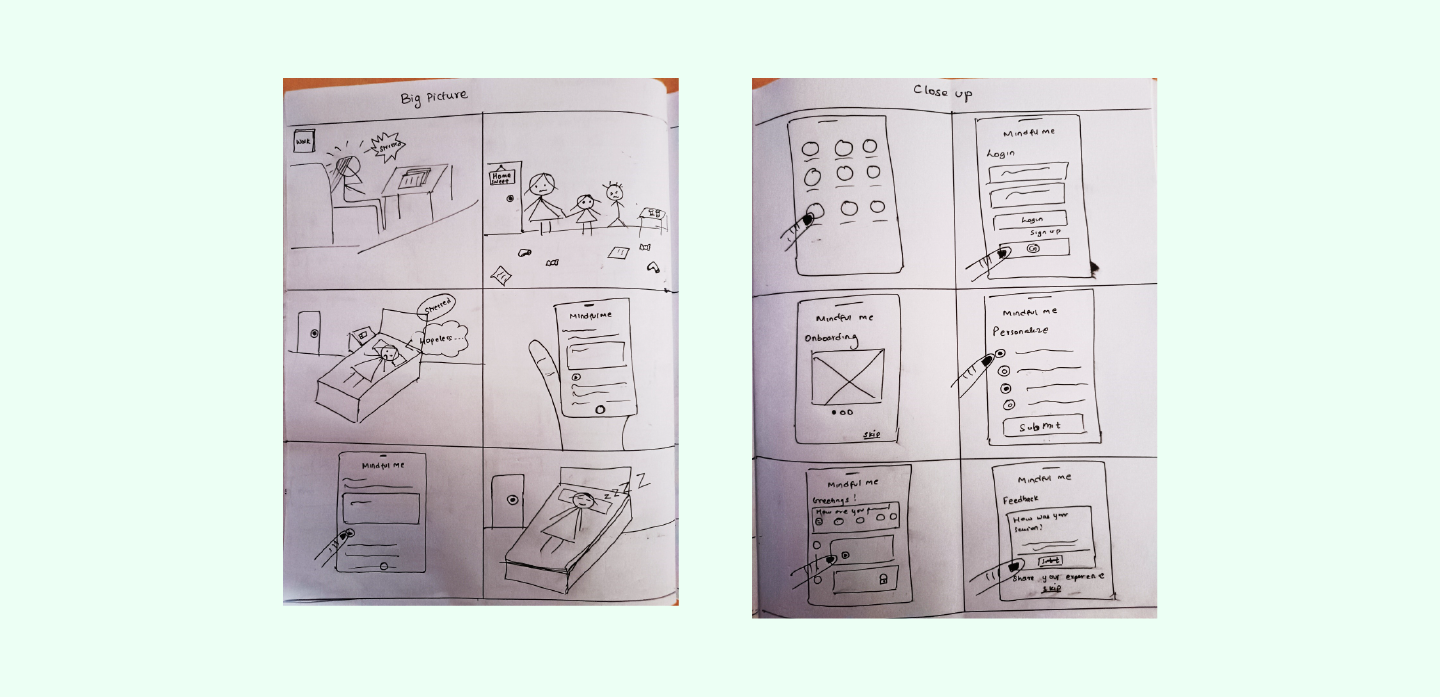 Big Picture
Work
Home
Stressed
Hopeless...
Mindful Me
Mindful Me
z z z z z
Close up
Mindful me
Login
Login
Sign up
G
Mindful me
Onboarding
Skip
Mindful me
Personalize
Submit
Mindful me
Greetings!
How are you
Mindful me
Feedback
How was your
Share your experience
Skip